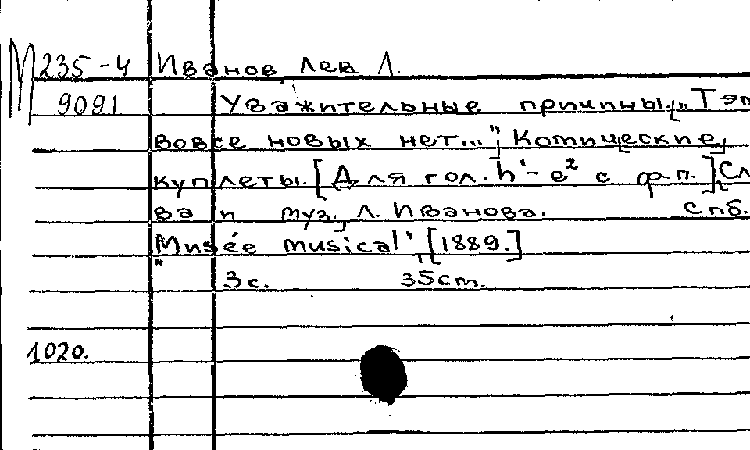 М 235-4 Иванов, Лев Л.
9091 Уважительные причины. „Тэт
вовсе новых нет..." Комические
куплеты. [Для гол. h¹-e² с ф.п.] Сл
ва и муз. Л. Иванова. Спб.
„Musée musical", [1889.]
3с. 35cm.
1020.